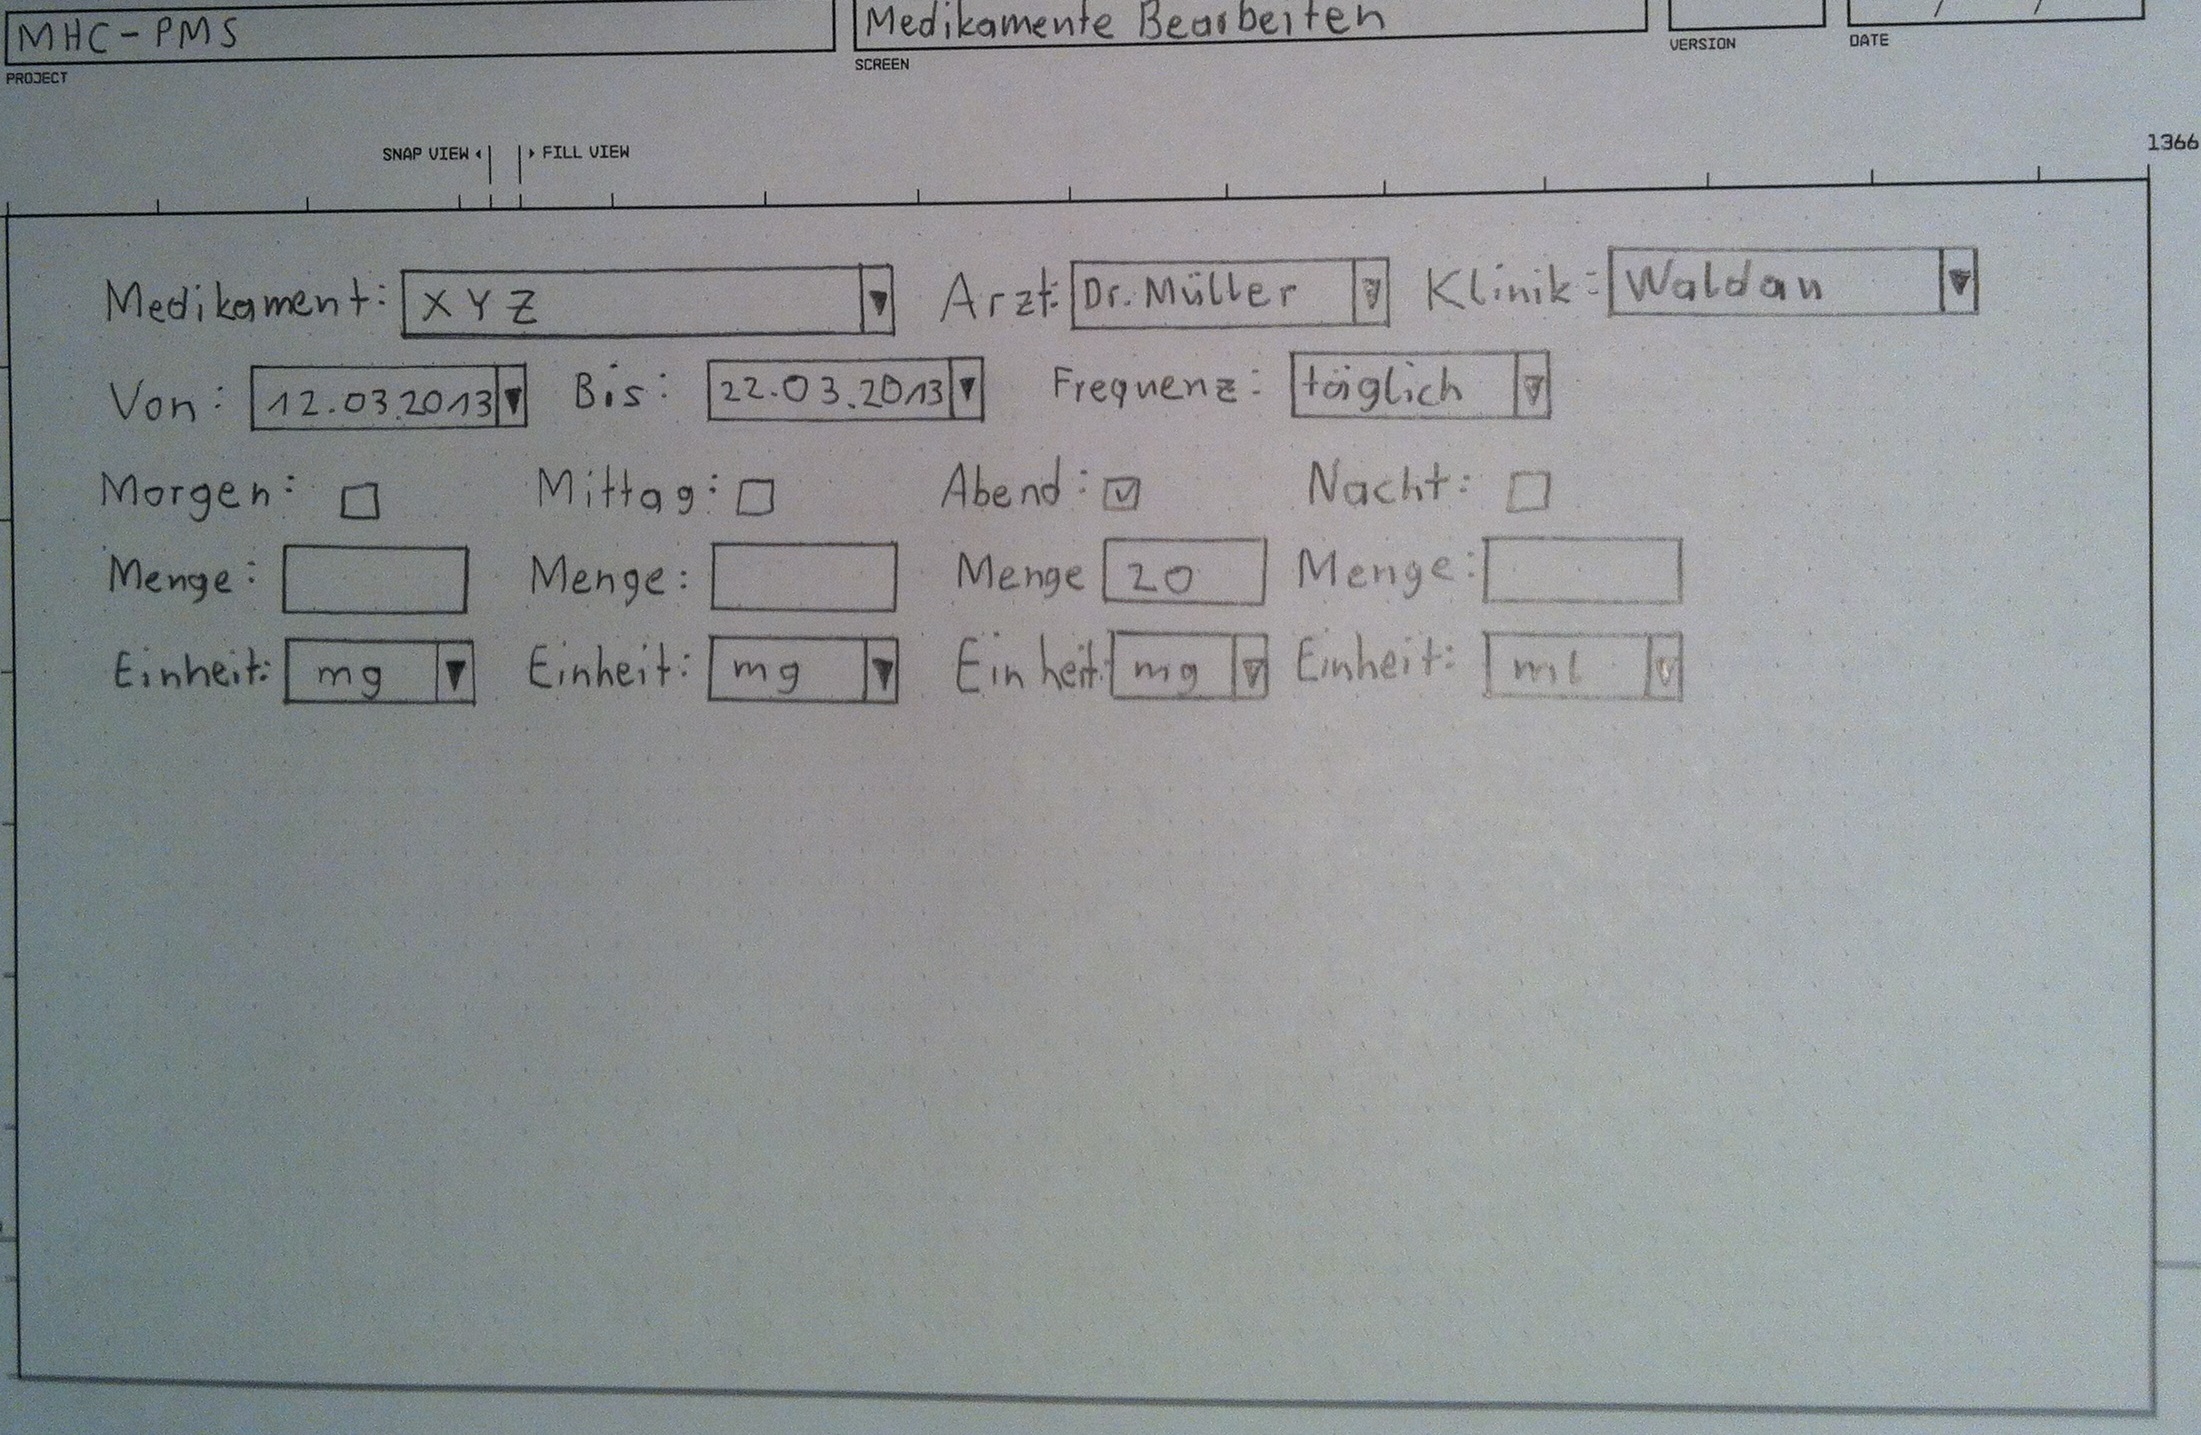 MHC-PMS Medikamente Bearbeiten
PROJECT SCREEN VERSION DATE
SNAP VIEW FILL VIEW 1366
Medikament: XYZ Arzt: Dr. Müller Klinik: Waldau
Von: 12.03.2013 Bis: 22.03.2013 Frequenz: täglich
Morgen: Mittag: Abend: Nacht:
Menge: Menge: Menge 20 Menge:
Einheit: mg Einheit: mg Einheit: mg Einheit: ml